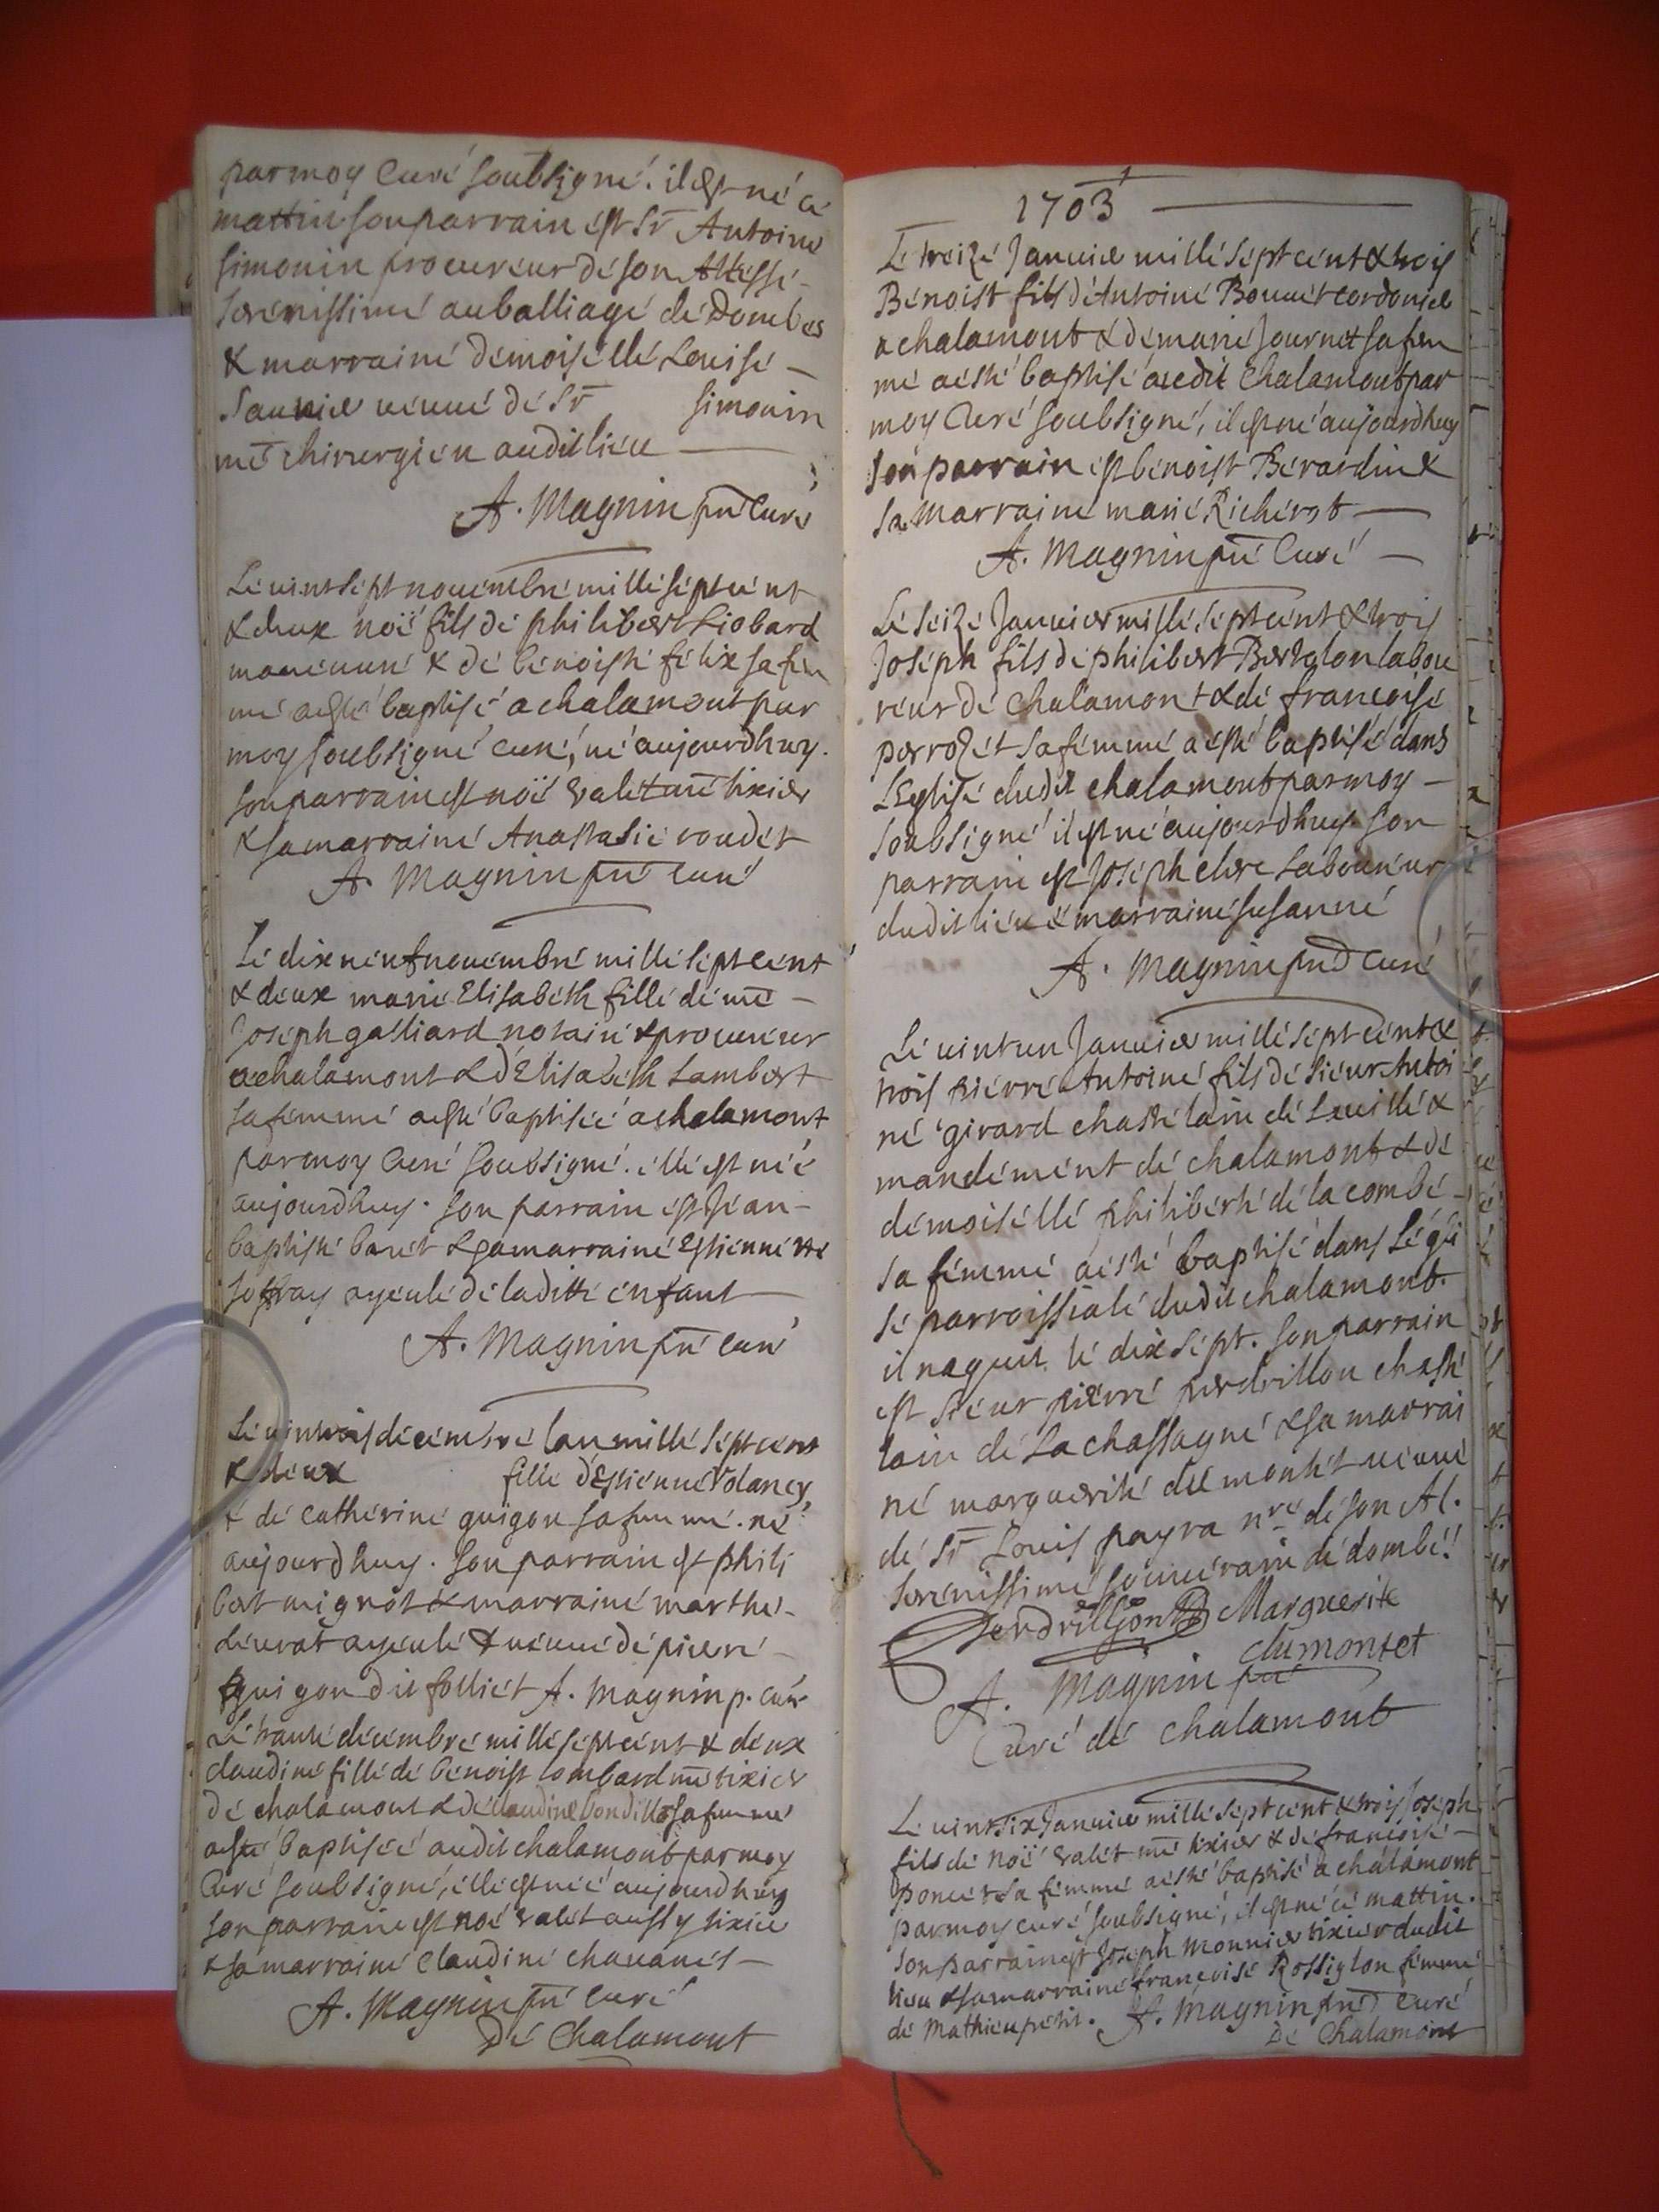 par moy Curé soubsigné. il est né ce
mattin son parrain est Sr Antoine
simonin procureur de son Altesse
serenissime au balliage de Dombes
& marraine demoiselle Louise
Saunier veuve de Sr simonin
me chirurgien audit lieu
A. Magnin pre Curé
Le vint sept novembre mille sept cent
& deux noë fils de philibert Liobard
maneuvre & de benoiste felix sa fem
me a esté baptisé a chalamont par
moy soubsigné curé, né aujourdhuy.
son parrain est noë valet me tixier
& sa marraine Anastasie roudet
A. Magnin pre curé
Le dix neuf novembre mille sept cent
& deux marie Elisabeth fille de me
Joseph galliard notaire & procureur
a chalamont & d'Elisabeth Lambert
sa femme a esté baptisée a chalamont
par moy Curé soubsigné. elle est née
aujourdhuy. son parrain est Jean
baptiste baret & sa marraine Estiennette
soffray ayeule de laditte enfant
A. Magnin pre curé
Le vint trois decembre lan mille sept cent
& deux fille d'Estienne Volancy
& de catherine guigon sa femme. né
aujourdhuy. son parrain est phili
bert mignot & marraine marthe
Levrat ayeule & veuve de pierre
guigon dit folliet A. Magnin p. curé
Le trante decembre mille sept cent & deux
claudine fille de benoist lombard me tixier
de chalamont & de claudine bondillo sa femme
a esté baptisée audit chalamont par moy
Curé soubsigné, elle est née aujourdhuy
son parrain est noé valet aussy tixier
& sa marraine Claudine chavanes
A. Magnin pre curé
De Chalamont
1703
Le treize Janvier mille sept cent & trois
Benoist fils d'Antoine Bouvet cordonier
a chalamont & de marie Journet sa fem
me a esté baptisé audit Chalamont par
moy Curé soubsigné, il est né aujourdhuy
son parrain est benoist Berardin &
sa marraine marie Richerot
A. Magnin pre Curé
Le seize Janvier mille sept cent & trois
Joseph fils de philibert Bertolon labou
reur de Chalamont & de francoise
perrozet sa femme a esté baptisé dans
L'Eglise dudit chalamont par moy
soubsigné il est né aujourdhuy son
parrain est Joseph clere Laboureur
dudit lieu & marraine susanne
A. Magnin pre curé
Le vint un Janvier mille sept cent &
trois pierre Antoine fils de sieur Antoi
ne girard chastelain de Laville &
mandement de chalamont & de
demoiselle philiberte de la combe
sa femme a esté baptisé dans L'égli
se parroissiale dudit chalamont.
il naquit le dix sept. son parrain
est sieur pierre perdrillon chaste
lain de La chassagne & sa marrai
ne marguerite du montet veuve
de Sr Louis payra nre de son Al.
serenissime souveraine de dombe!
Perdrillion Marguerite
dumontet
A. Magnin pre
Curé de chalamont
Le vint six Janvier mille sept cent & trois Joseph
fils de Noë valet me tixier & de francoise
poncet sa femme a esté baptisé a chalamont
par moy curé soubsigné, il est né ce mattin.
son parrain est Joseph Monnier tixier dudit
lieu & sa marraine francoise Rossiglon femme
de Mathieu petit. A. Magnin pre curé
De Chalamont